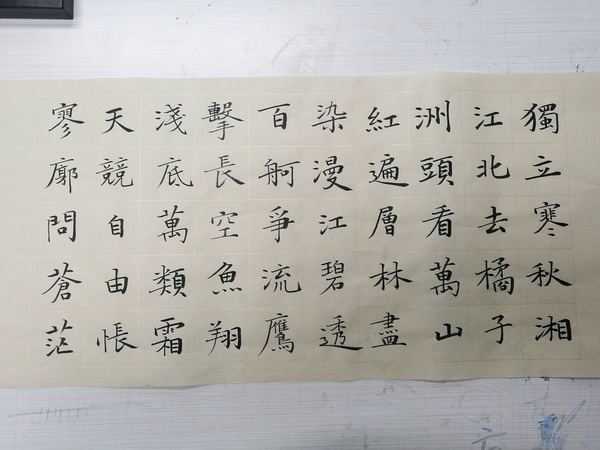 獨立寒秋湘
江北去橘子
洲頭看萬山
紅遍層林盡
染漫江碧透
百舸爭流鷹
擊長空魚翔
淺底萬類霜
天競自由悵
寥廓問蒼茫